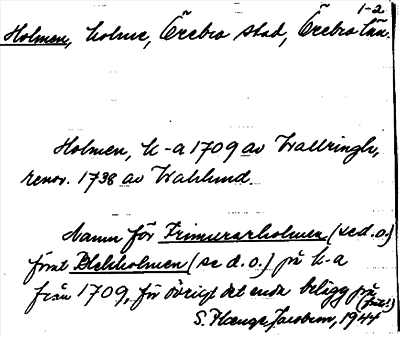 1-2
Holmen, holme, Örebro stad, Örebro län.
Holmen, k-a 1709 av Wallringh,
renov. 1738 av Wahlund.
Namn för Frimurarholmen (se d.o.)
förut Blekholmen (se d.o.) på k-a
från 1709, för övrigt det enda belägg på
(frut!)
S. Plænge Jacobson, 1944